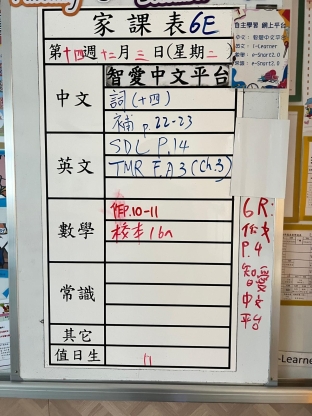 家課表6E
第十四週十二月三日(星期二)
自主學習 網上平台
中文：智愛中文平台
英文：i-Learner
數學：e-Smart2.0
常識：e-Smart2.0
智愛中文平台
中文
詞(十四)
補 p.22-23
英文
SDL P.14
TMR E.A3(Ch.3)
數學
P.10-11
校本16A
常識
其它
值日生
17
6R
作文
P.4
智愛
中文
平台
i-Learner